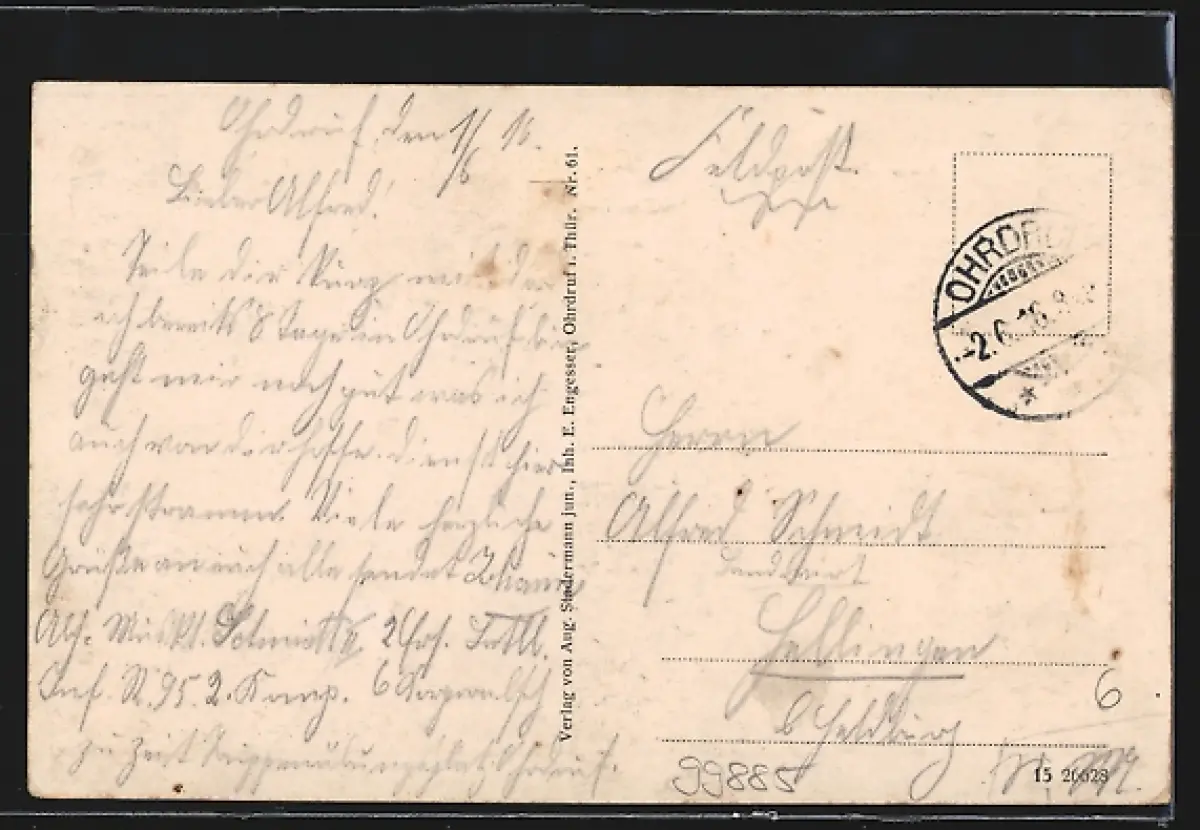 Ohrdruf, den 1/6 16.
Lieber Alfred!
Teile dir kurz mit das
ich bereits 8 Tage in Ohrdruf bin
geht mir noch gut was ich
auch von dir hoffe. Dienst hier
sehr stramm. Viele herzliche
Grüße an euch alle sendet
Abs. Muskt. Schmidt II 2 Ers. Battl.
Inf. R. 95 2. Komp. 6 Korporalsch
zu Zeit Truppenübungsplatz Ohrdruf.
Verlag von Aug. Stadermann jun., Inh. E. Engesser, Ohrdruf i. Thür. Nr. 61.
Feldpost.
OHRDRUF
-2.6.16.8
Herrn
Alfred Schmidt
Landwirt
Hellingen
b Heldburg
6
99885
15 26628